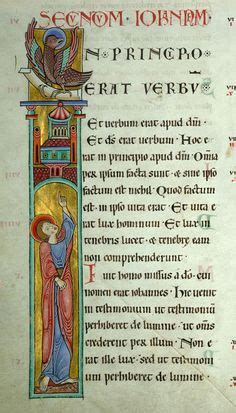 SECNDM · IOHANDM ·
IN · PRINCIPIO ·
ERAT VERBV̄ ·
Et verbum erat apud dm̄ ·
Et ds̄ erat verbum · Hoc e
rat in principio apud dm̄ · Omīa
per ipsum facta sunt · & sine ipso
factum est nichil · Quod factum
est · in ipso uita erat · Et uita e
rat lux hominum · Et lux in
tenebris lucet · & tenebrę eam
non comprehenderunt ·
Fuit homo missus a do · cui
nomen erat iohannes · Hic uenit
in testimonium ut testimoniū
perhiberet de lumine · ut om̄s
crederent per illum · Non e
rat ille lux · sed ut testimoni
um perhiberet de lumine ·